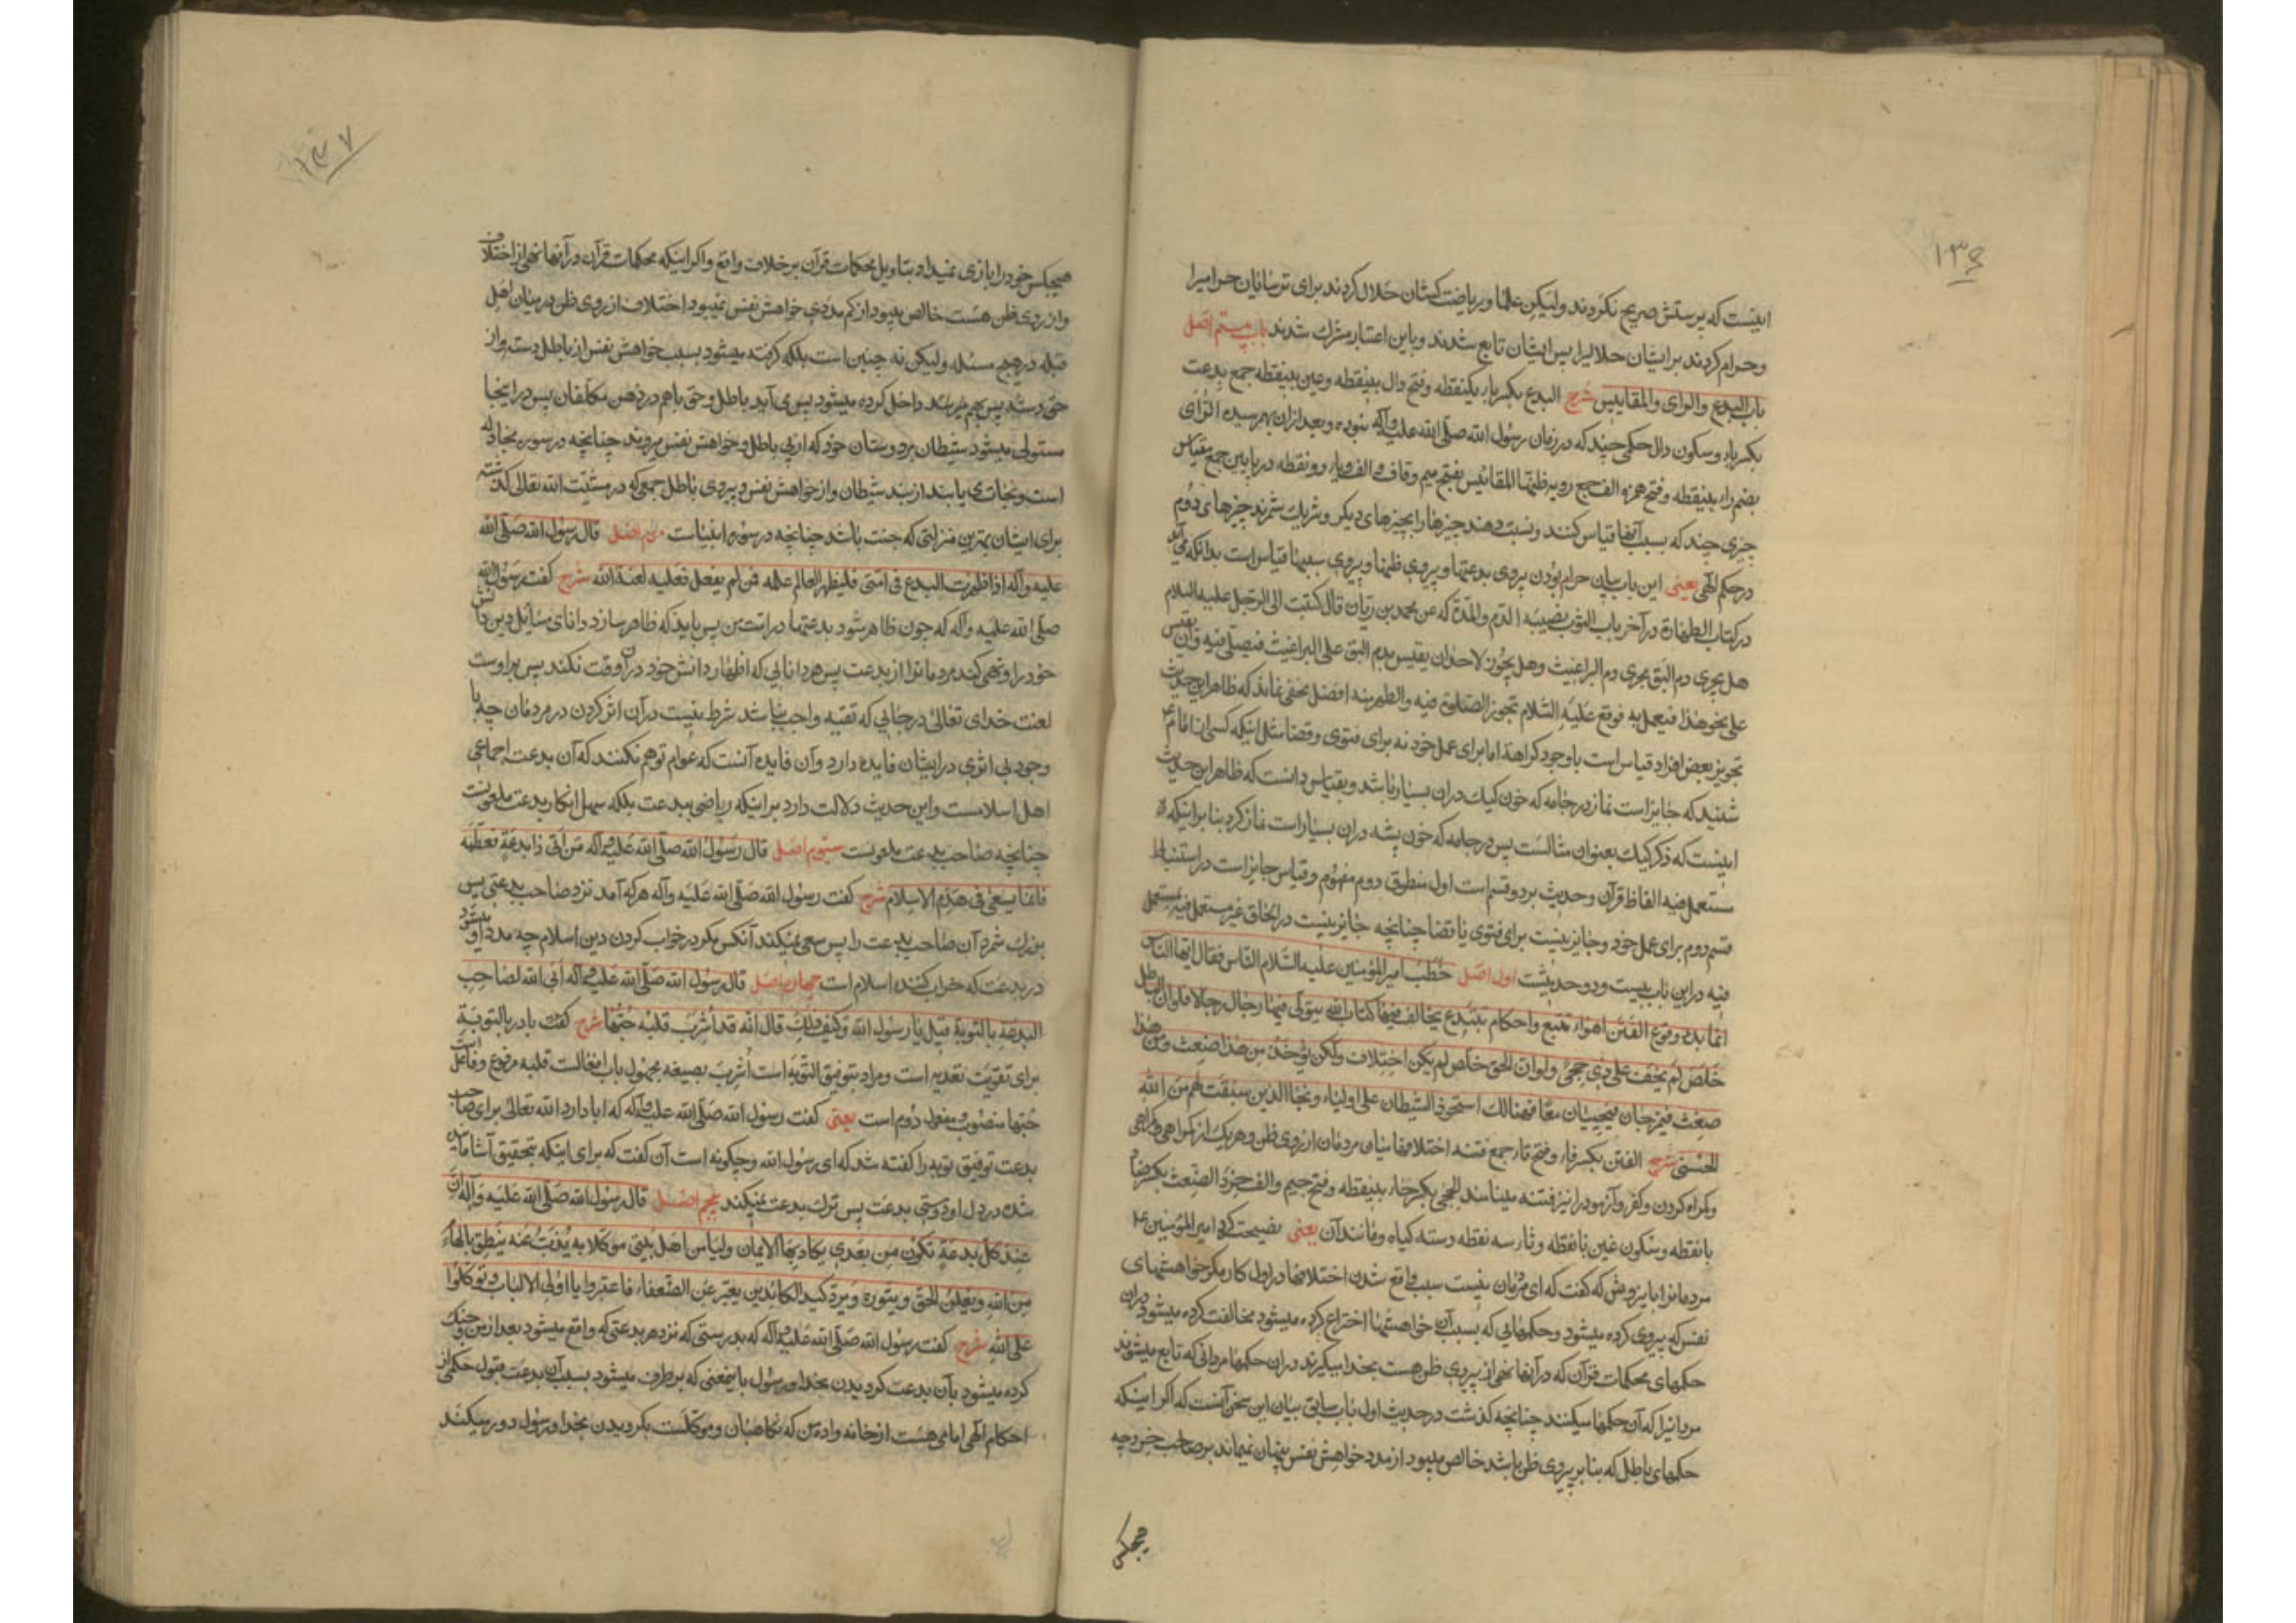 ۱۳۶
اینست که پرستش صریح نکردند ولیکن علما و ریاضت کشان حلال کردند برای ترسایان حرامیرا
وحرام کردند بر ایشان حلالیرا پس ایشان تابع شدند وباین اعتبار مشرك شدند باب بیستم اصل
باب البدع والرای والمقاییس شرح البدع بکسر باء یکنقطه وفتح دال بینقطه وعین بینقطه جمع بدعت
بکسر باء وسکون دال حکمی چند که در زمان رسول الله صلی الله علیه وآله نبوده وبعد ازان بهم رسیده الرای
بضم راء بینقطه وفتح همزه والف جمع رویه ظنها المقائیس بفتح میم وقاف والف ویاء دو نقطه در پایین جمع مقیاس
چیزی چند که بسبب آنها قیاس کنند ونسبت دهند چیزها را بچیزهای دیگر وشریك شمرند چیزهای دوم
در حکم الهی یعنی این باب بیان حرام بودن پیروی بدعتها وپیروی ظنها وپیروی سببهای قیاس است بدانکه می آید
در کتاب الطهارة در آخر باب الثوب یصیبه الدم والمدة که عن محمد بن ریان قال کتبت الی الرجل علیه السلام
هل یجری دم البق مجری دم البراغیث وهل یجوز لاحد ان یقیس بدم البق علی البراغیث فیصلی فیه وان یقیس
علی نحو هذا فیعمل به فوقع علیه السلام تجوز الصلوة فیه والطهر منه افضل مخفی نماند که ظاهر این حدیث
تجویز بعض افراد قیاس است باوجود کراهت اما برای عمل خود نه برای فتوی وقضا مثل اینکه کسی از امام ع
شنید که جایز است نماز در جامه که خون کیك دران بسیار باشد وبقیاس دانست که ظاهر این حدیث
اینست که ذکر کیك بعنوان مثالست پس در جامه که خون پشه دران بسیار است نماز کرد بنابر اینکه
مستعمل فیه الفاظ قرآن وحدیث بر دو قسم است اول منطوق دوم مفهوم وقیاس جایز است در استنباط
قسم دوم برای عمل خود وجایز نیست برای فتوی یا قضا چنانچه جایز نیست در الحاق غیر مستعمل فیه بمستعمل
فیه در این باب بیست ودو حدیثست اول اصل خطب امیر المؤمنین علیه السلام الناس فقال ایها الناس
انما بدء وقوع الفتن اهواء تتبع واحکام تبتدع یخالف فیها کتاب الله یتولی فیها رجال رجالا فلو ان الباطل
خلص لم یخف علی ذی حجی ولو ان الحق خلص لم یکن اختلاف ولکن یؤخذ من هذا ضغث ومن هذا
ضغث فیمزجان فیجیئان معا فهنالك استحوذ الشیطان علی اولیائه ونجا الذین سبقت لهم من الله
الحسنی شرح الفتن بکسر فاء وفتح تاء جمع فتنه اختلافها میان مردمان از روی ظن وهر یك از گمراهی وگمراهی
وگمراه کردن وکفر وآزمودن را نیز فتنه مینامند الحجی بکسر حاء بینقطه وفتح جیم والف خرد الضغث بکسر ضاد
بانقطه وسکون غین بانقطه وثاء سه نقطه دسته گیاه ومانند آن یعنی نصیحت کرد امیر المؤمنین ع
مردمانرا باین روش که گفت که ای مردمان نیست سبب واقع شدن اختلافها در اول کار مگر خواهشهای
نفس که پیروی کرده میشود وحکمهایی که بسبب آن خواهشها اختراع کرده میشود مخالفت کرده میشود دران
حکمهای محکمات قرآن که در آنها نهی از پیروی ظن هست بخدا میگیرند دران حکمها مردانی که تابع میشوند
مردانیرا که آن حکمها میکنند چنانچه گذشت در حدیث اول باب سابق بیان این سخن آنست که اگر اینکه
حکمهای باطل که بنابر پیروی ظن باشد خالص میبود از مدد خواهش نفس پنهان نمیماند بر صاحب خرد چه
هیچکس
۱۳۷
هیچکس خود را بازی نمیداد بتاویل محکمات قرآن بر خلاف واقع واگر اینکه محکمات قرآن در آنها نهی از اختلاف
واز روی ظن هست خالص میبود از کم مددی خواهش نفس نمیبود اختلاف از روی ظن در میان اهل
قبله در هیچ مسئله ولیکن نه چنین است بلکه گرفته میشود بسبب خواهش نفس از باطل دسته واز
حق دسته پس بهم داخل کرده میشود پس می آید باطل وحق باهم در ذهن مکلفان پس در اینجا
مستولی میشود شیطان بر دوستان خود که از پی باطل وخواهش نفس میروند چنانچه در سوره مجادله
است ونجات می یابند از بند شیطان واز خواهش نفس وپیروی باطل جمعی که در مشیت الله تعالی گذشته
برای ایشان بهترین منزلتی که جنت باشد چنانچه در سوره انبیاست دوم اصل قال رسول الله صلی الله
علیه وآله اذا ظهرت البدع فی امتی فلیظهر العالم علمه فمن لم یفعل فعلیه لعنة الله شرح گفت رسول الله
صلی الله علیه وآله که چون ظاهر شود بدعتها در امت من پس باید که ظاهر سازد دانای مسائل دین دانش
خود را ونهی کند مردمانرا از بدعت پس هر دانایی که اظهار دانش خود در آن وقت نکند پس بر اوست
لعنت خدای تعالی در جایی که تقیه واجب نباشد شرط نیست در آن اثر کردن در مردمان چه با
وجود بی اثری در ایشان فایده دارد وآن فایده آنست که عوام توهم نکنند که آن بدعت اجماعی
اهل اسلامست واین حدیث دلالت دارد بر اینکه راضی ببدعت بلکه سهل انکار بدعت ملعونست
چنانچه صاحب بدعت ملعونست سیوم اصل قال رسول الله صلی الله علیه وآله من اتی ذا بدعة فعظمه
فانما یسعی فی هدم الاسلام شرح گفت رسول الله صلی الله علیه وآله هر که آمد نزد صاحب بدعتی پس
بزرك شمرد آن صاحب بدعت را پس سعی نمیکند آنکس مگر در خراب کردن دین اسلام چه مدد او میشود
در بدعت که خراب کننده اسلام است چهارم اصل قال رسول الله صلی الله علیه وآله ابی الله لصاحب
البدعة بالتوبة قیل یا رسول الله وکیف ذلك قال انه قد اشرب قلبه حبها شرح گفت باء در بالتوبة
برای تقویت تعدیه است ومراد بتوفیق التوبة است اشرب بصیغه مجهول باب افعالست قلبه مرفوع وفاعل است
حبها منصوب ومفعول دوم است یعنی گفت رسول الله صلی الله علیه وآله که ابا دارد الله تعالی برای صاحب
بدعت توفیق توبه را گفته شد که ای رسول الله وچگونه است آن گفت که برای اینکه بتحقیق آشامانیده
شده در دل او دوستی بدعت پس ترك بدعت نمیکند پنجم اصل قال رسول الله صلی الله علیه وآله ان
عند کل بدعة تکون من بعدی یکاد بها الایمان ولیا من اهل بیتی موکلا به یذب عنه ینطق بالهام
من الله ویعلن الحق وینوره ویرد کید الکائدین یعبر عن الضعفاء فاعتبروا یا اولی الالباب وتوکلوا
علی الله شرح گفت رسول الله صلی الله علیه وآله که بدرستی که نزد هر بدعتی که واقع میشود بعد از من
کرده میشود بآن بدعت گرویدن بخدا ورسول باینمعنی که بر طرف میشود بسبب آن بدعت قبول حکمی از
احکام الهی امامی هست از خانه واده من که نگاهبان وموکلست بگرویدن بخدا ورسول دور میکند